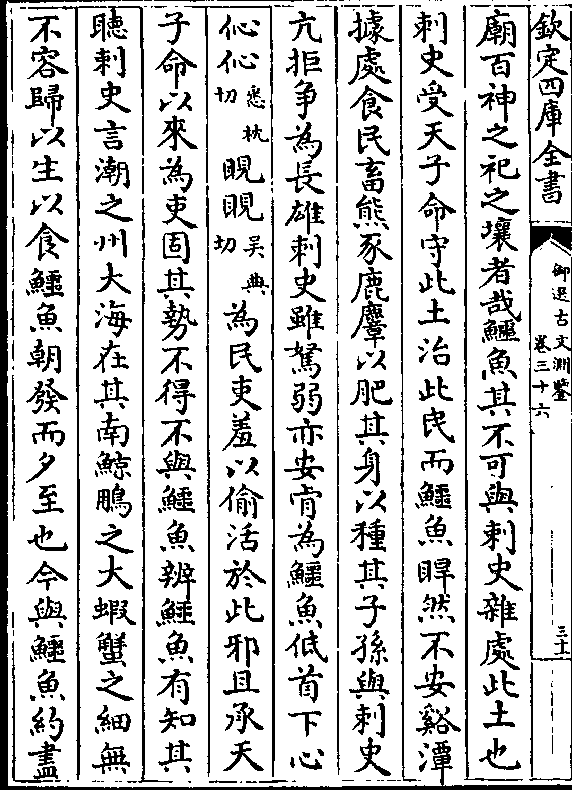 欽定四庫全書
御選古文淵鑒
卷三十六
三十
廟百神之祀之壤者哉鱷魚其不可與刺史雜處此土也
刺史受天子命守此土治此民而鱷魚睅然不安谿潭
據處食民畜熊豕鹿麞以肥其身以種其子孫與刺史
亢拒爭為長雄刺史雖駑弱亦安肯為鱷魚低首下心
伈伈悉枕切睍睍吴典切為民吏羞以偷活於此邪且承天
子命以來為吏固其勢不得不與鱷魚辨鱷魚有知其
聽刺史言潮之州大海在其南鯨鵬之大蝦蟹之細無
不容歸以生以食鱷魚朝發而夕至也今與鱷魚約盡